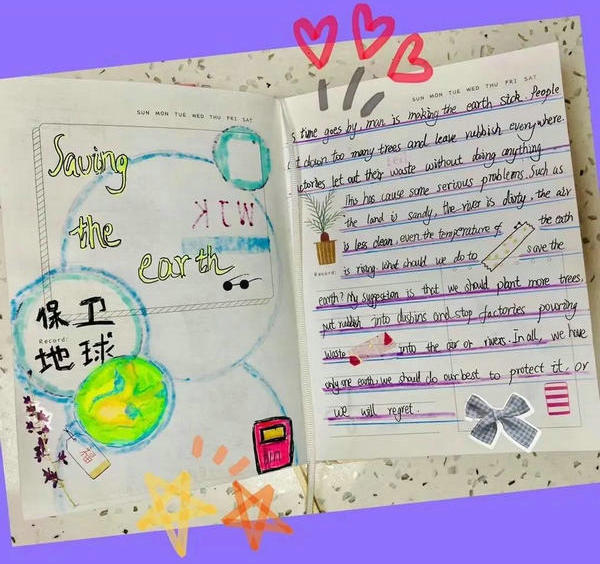 SUN MON TUE WED THU FRI SAT
Saving
the
earth
保卫
Record:
地球
SUN MON TUE WED THU FRI SAT
s time goes by, man is making the earth sick. People
t down too many trees and leave rubbish everywhere.
ctories let out their waste without doing anything.
This has cause some serious problems. Such as
the land is sandy, the river is dirty, the air
is less clean, even the temperature of the earth
Record:
is rising. What should we do to save the
earth? My suggestion is that we should plant more trees,
put rubbish into dusbins and stop factories pouring
waste into the air or rivers. In all, we have
only one earth, we should do our best to protect it. Or
we will regret.